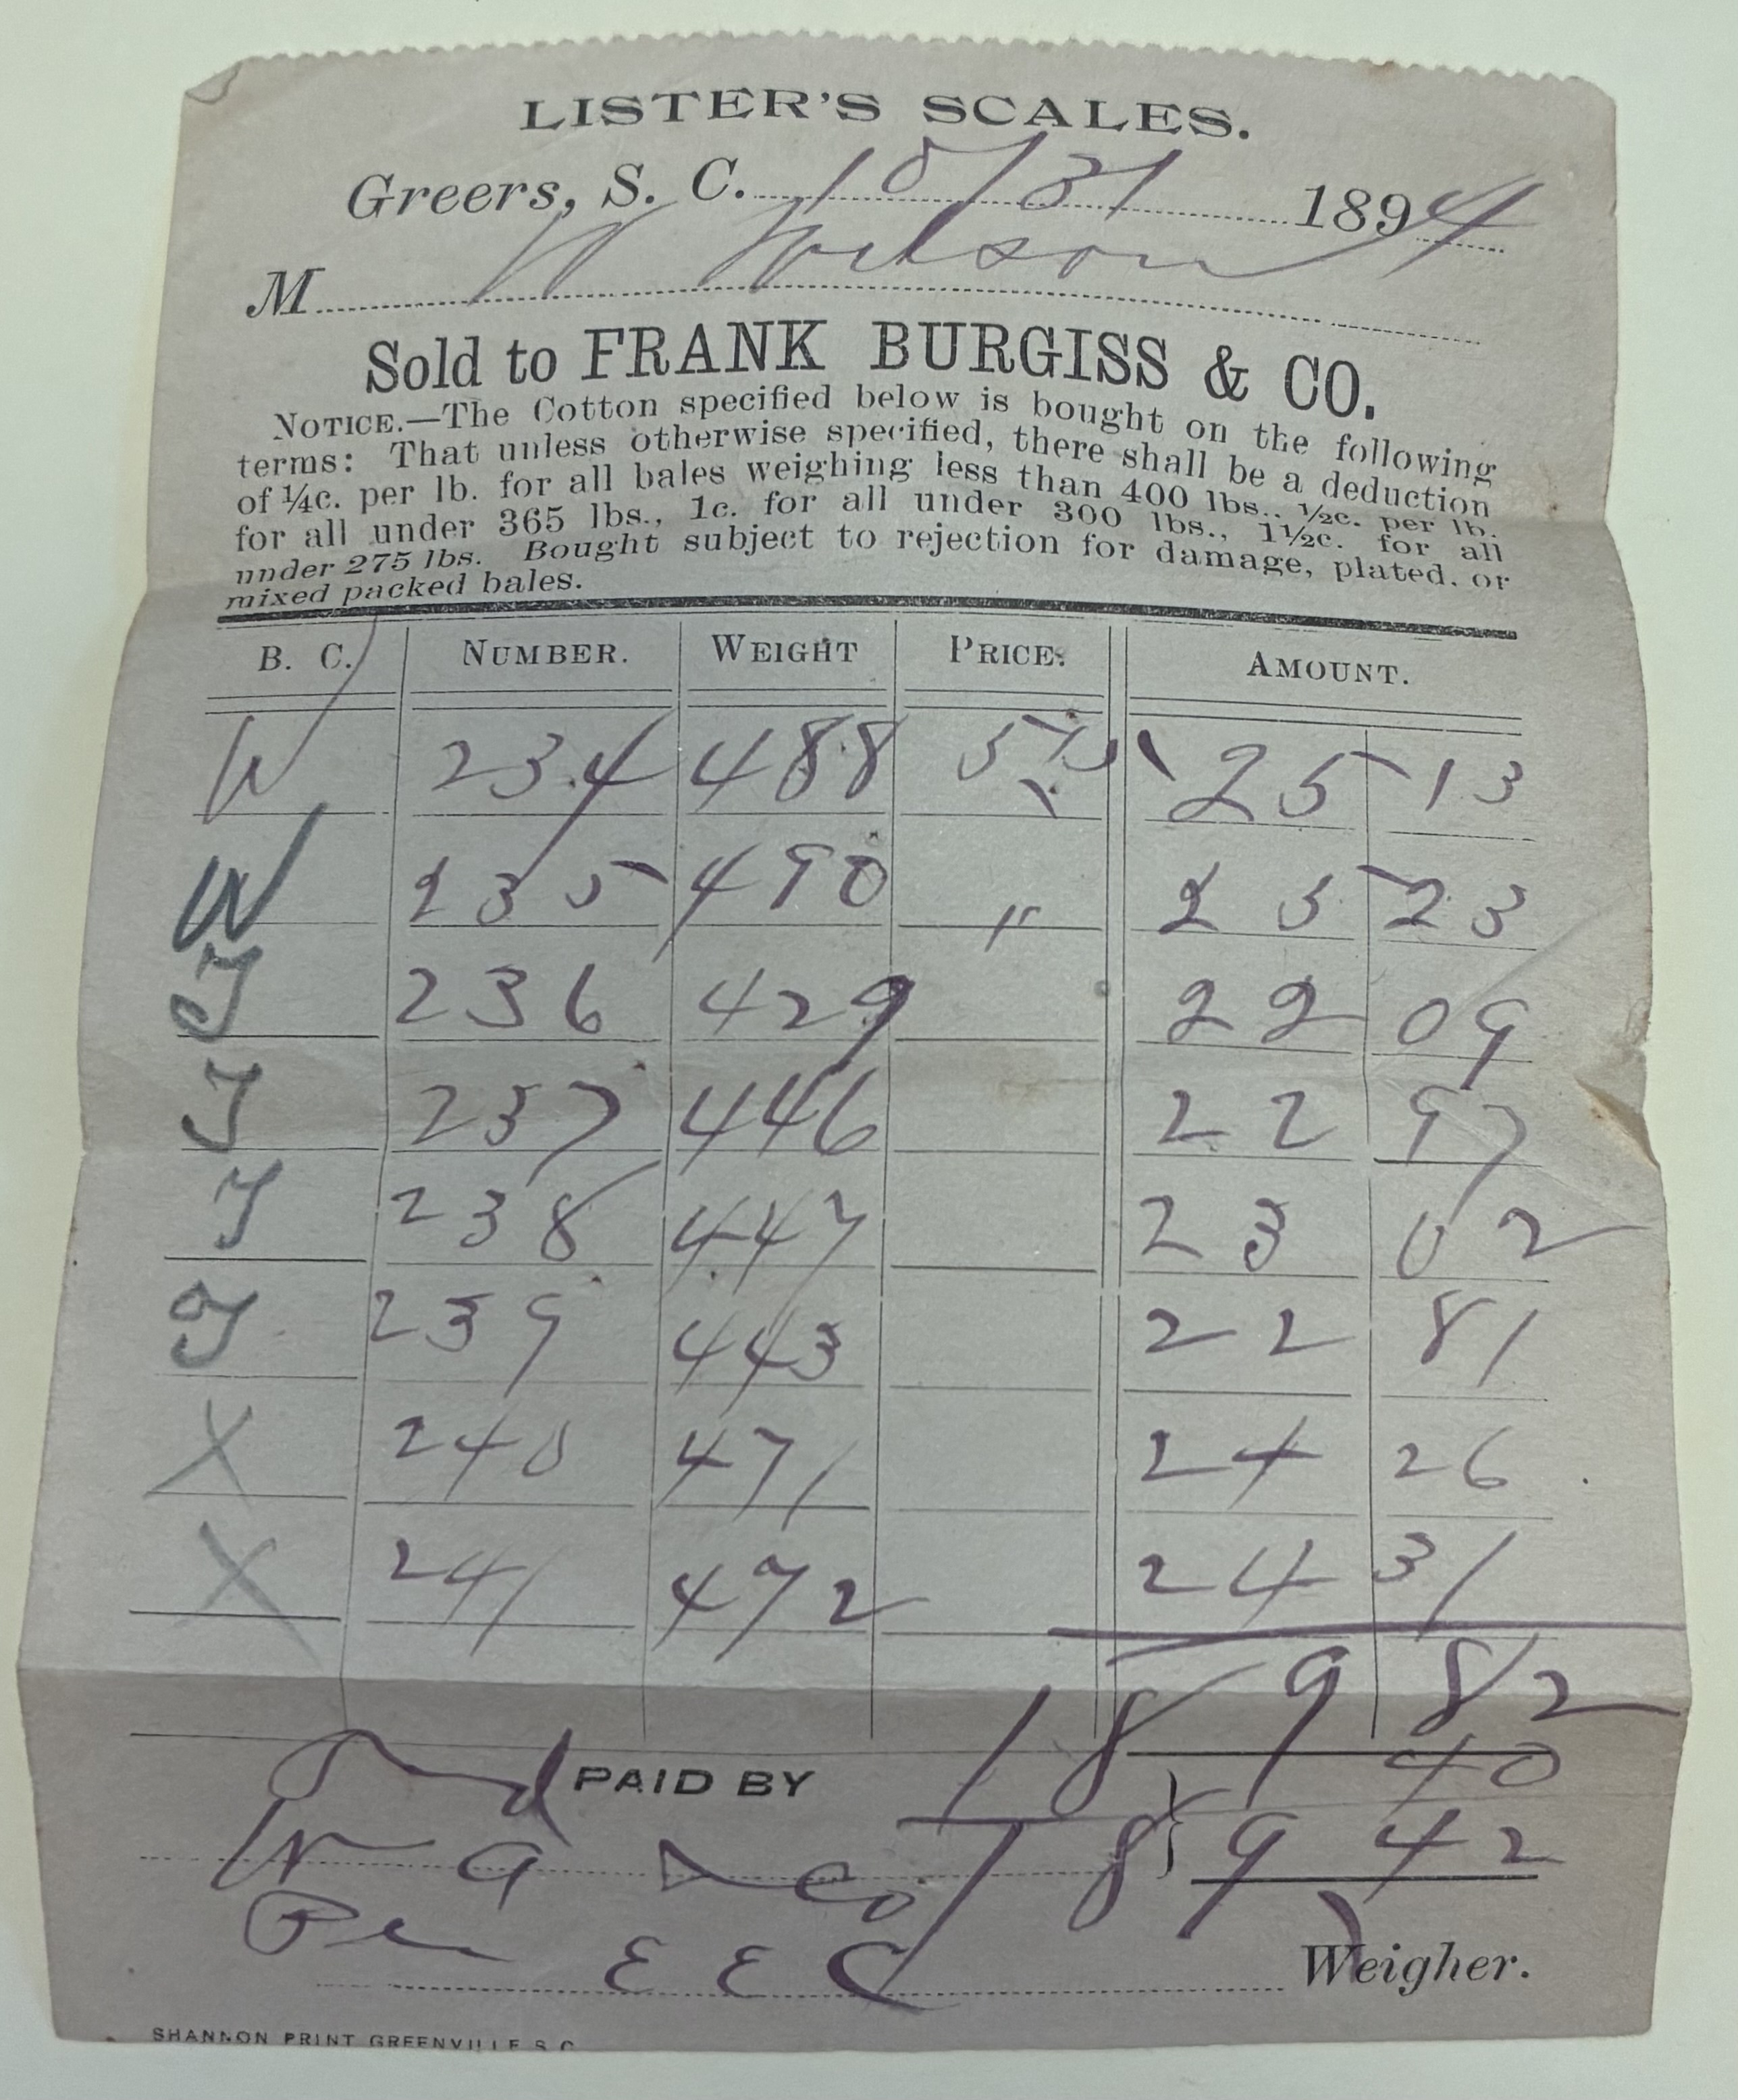 LISTER'S SCALES.
Greers, S. C. 10/31 1894
M W Wilson
Sold to FRANK BURGISS & CO.
NOTICE.—The Cotton specified below is bought on the following
terms: That unless otherwise specified, there shall be a deduction
of ¼c. per lb. for all bales weighing less than 400 lbs., ½c. per lb.
for all under 365 lbs., 1c. for all under 300 lbs., 1½c. for all
under 275 lbs. Bought subject to rejection for damage, plated, or
mixed packed bales.
B. C. NUMBER. WEIGHT PRICE. AMOUNT.
W 234 488 25 13
W 235 490 " 25 23
J 236 429 22 09
J 237 446 22 97
J 238 447 23 02
J 239 443 22 81
X 240 471 24 26
X 241 472 24 31
189 82
PAID BY 40
W G & Co 189 42
Per E E C Weigher.
SHANNON PRINT GREENVILLE S C